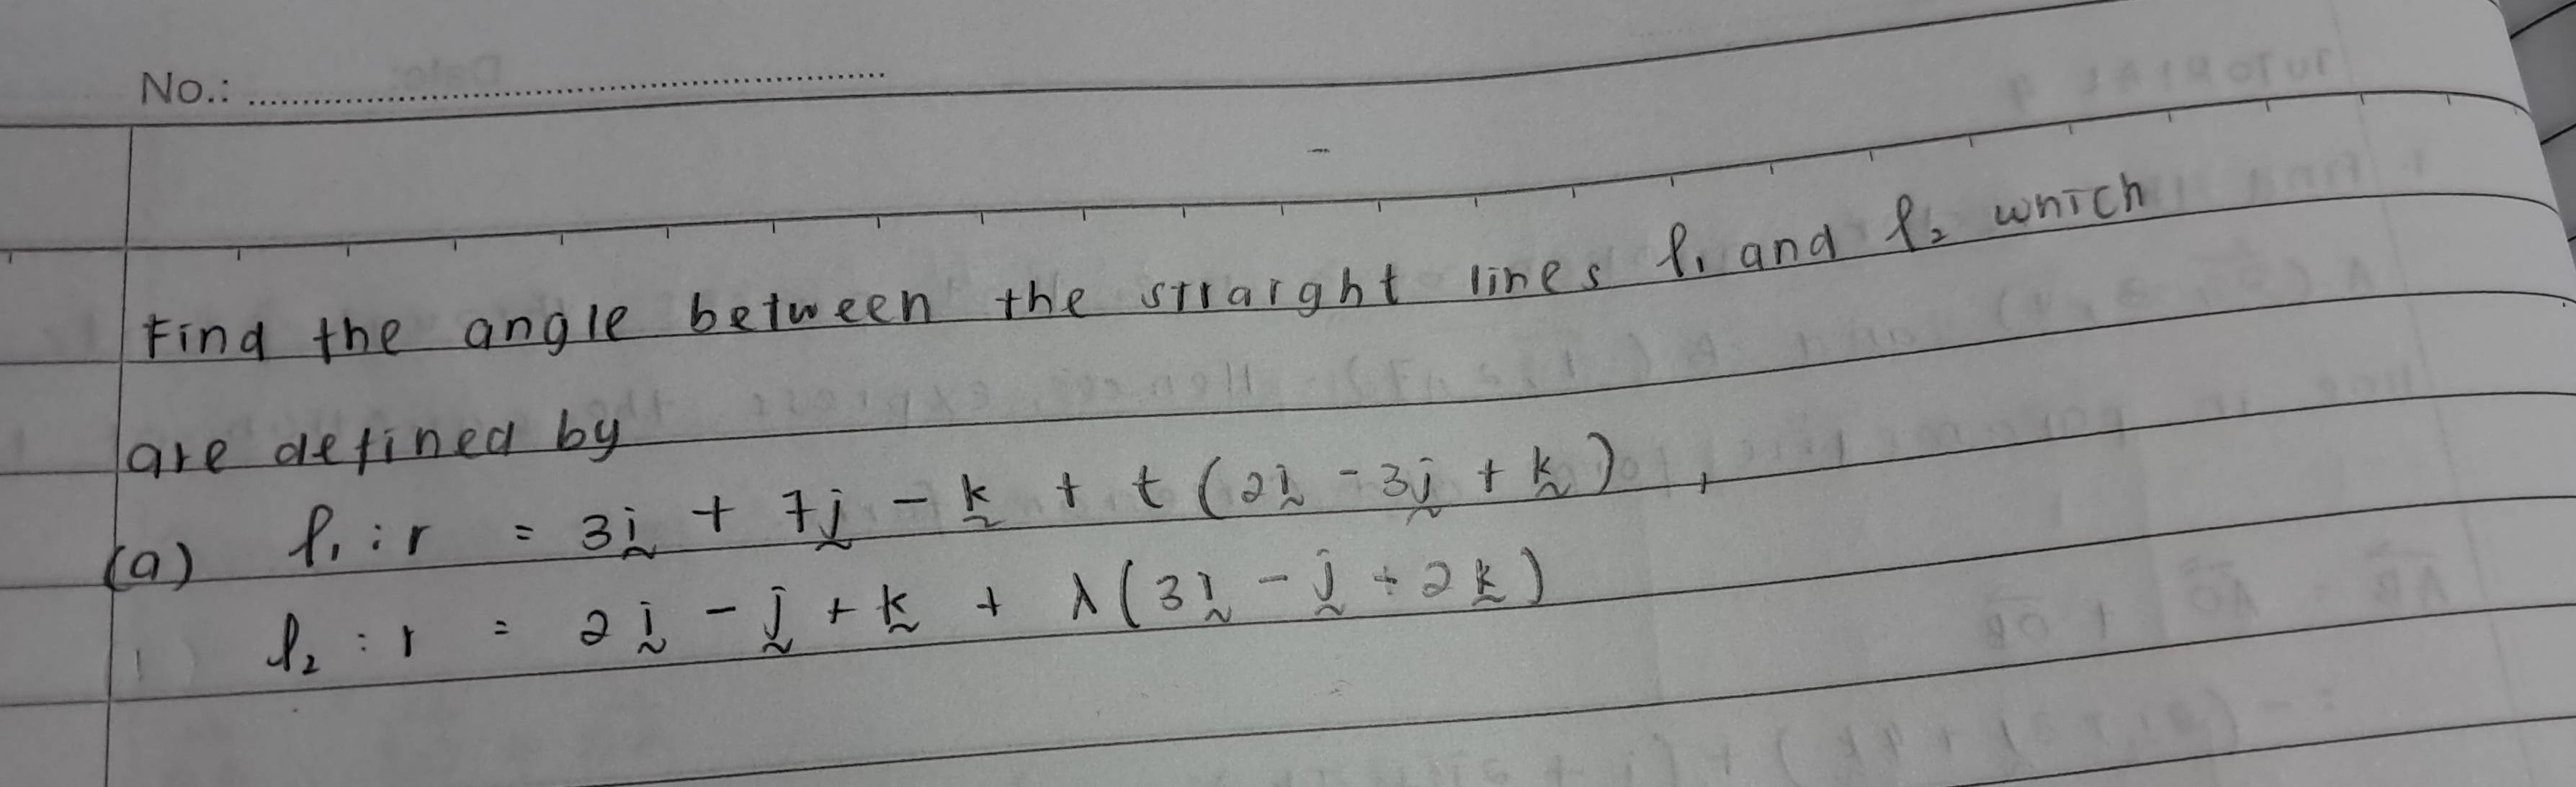 No.: ....................
Find the angle between the straight lines ℓ₁ and ℓ₂ which
are defined by
(a) ℓ₁ : r = 3i + 7j - k + t (2i - 3j + k) ,
ℓ₂ : r = 2i - j + k + λ (3i - j + 2k)